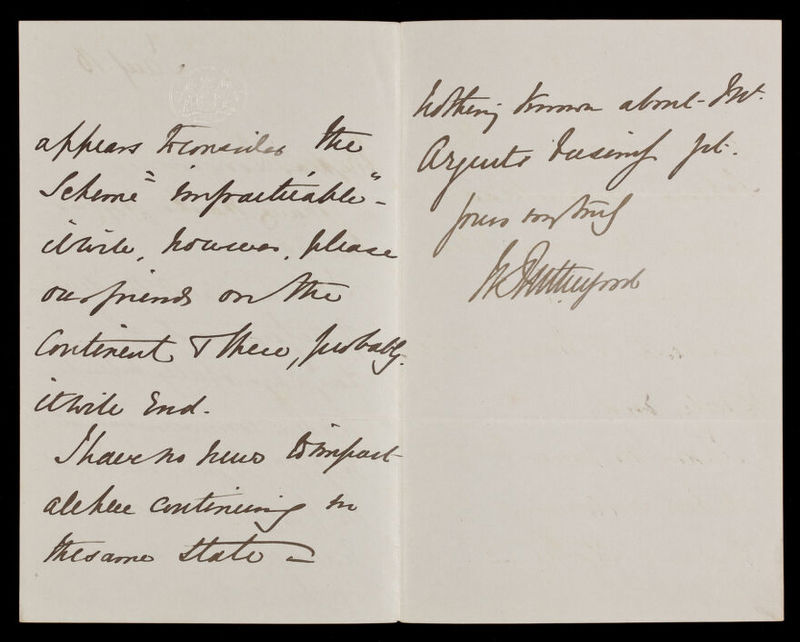 appears to consider the
Scheme "impracticable" -
it will, however, please
our friends on the
Continent & there, probably,
it will End.
I have no news to impart
all here continuing in
the same state -
Nothing known about Mr.
Argents leasing yet.
yours very truly
W Rutherford